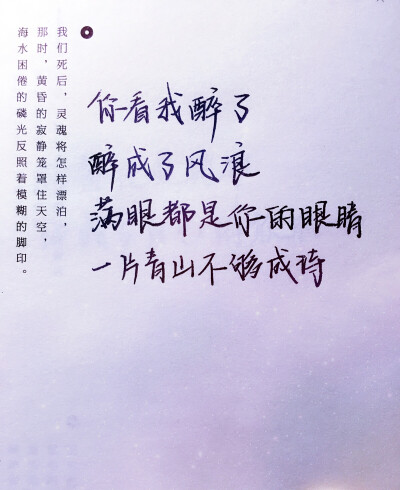 我们死后，灵魂将怎样漂泊，
那时，黄昏的寂静笼罩住天空，
海水困倦的磷光反照着模糊的脚印。
你看我醉了
醉成了风浪
满眼都是你的眼睛
一片青山不够成诗